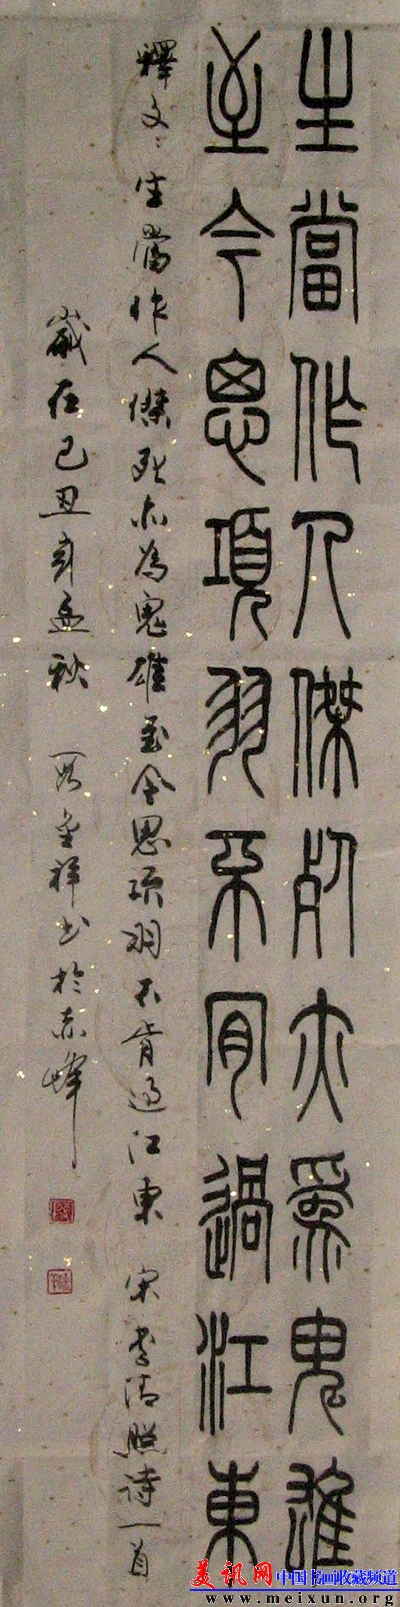 生當作人傑死亦爲鬼雄
至今思項羽不肯過江東
釋文：生當作人傑死亦為鬼雄至今思項羽不肯過江東 宋李清照诗一首
歲在己丑孟秋 祥书於赤峰
美讯网 中国书画收藏频道
www.meixun.org